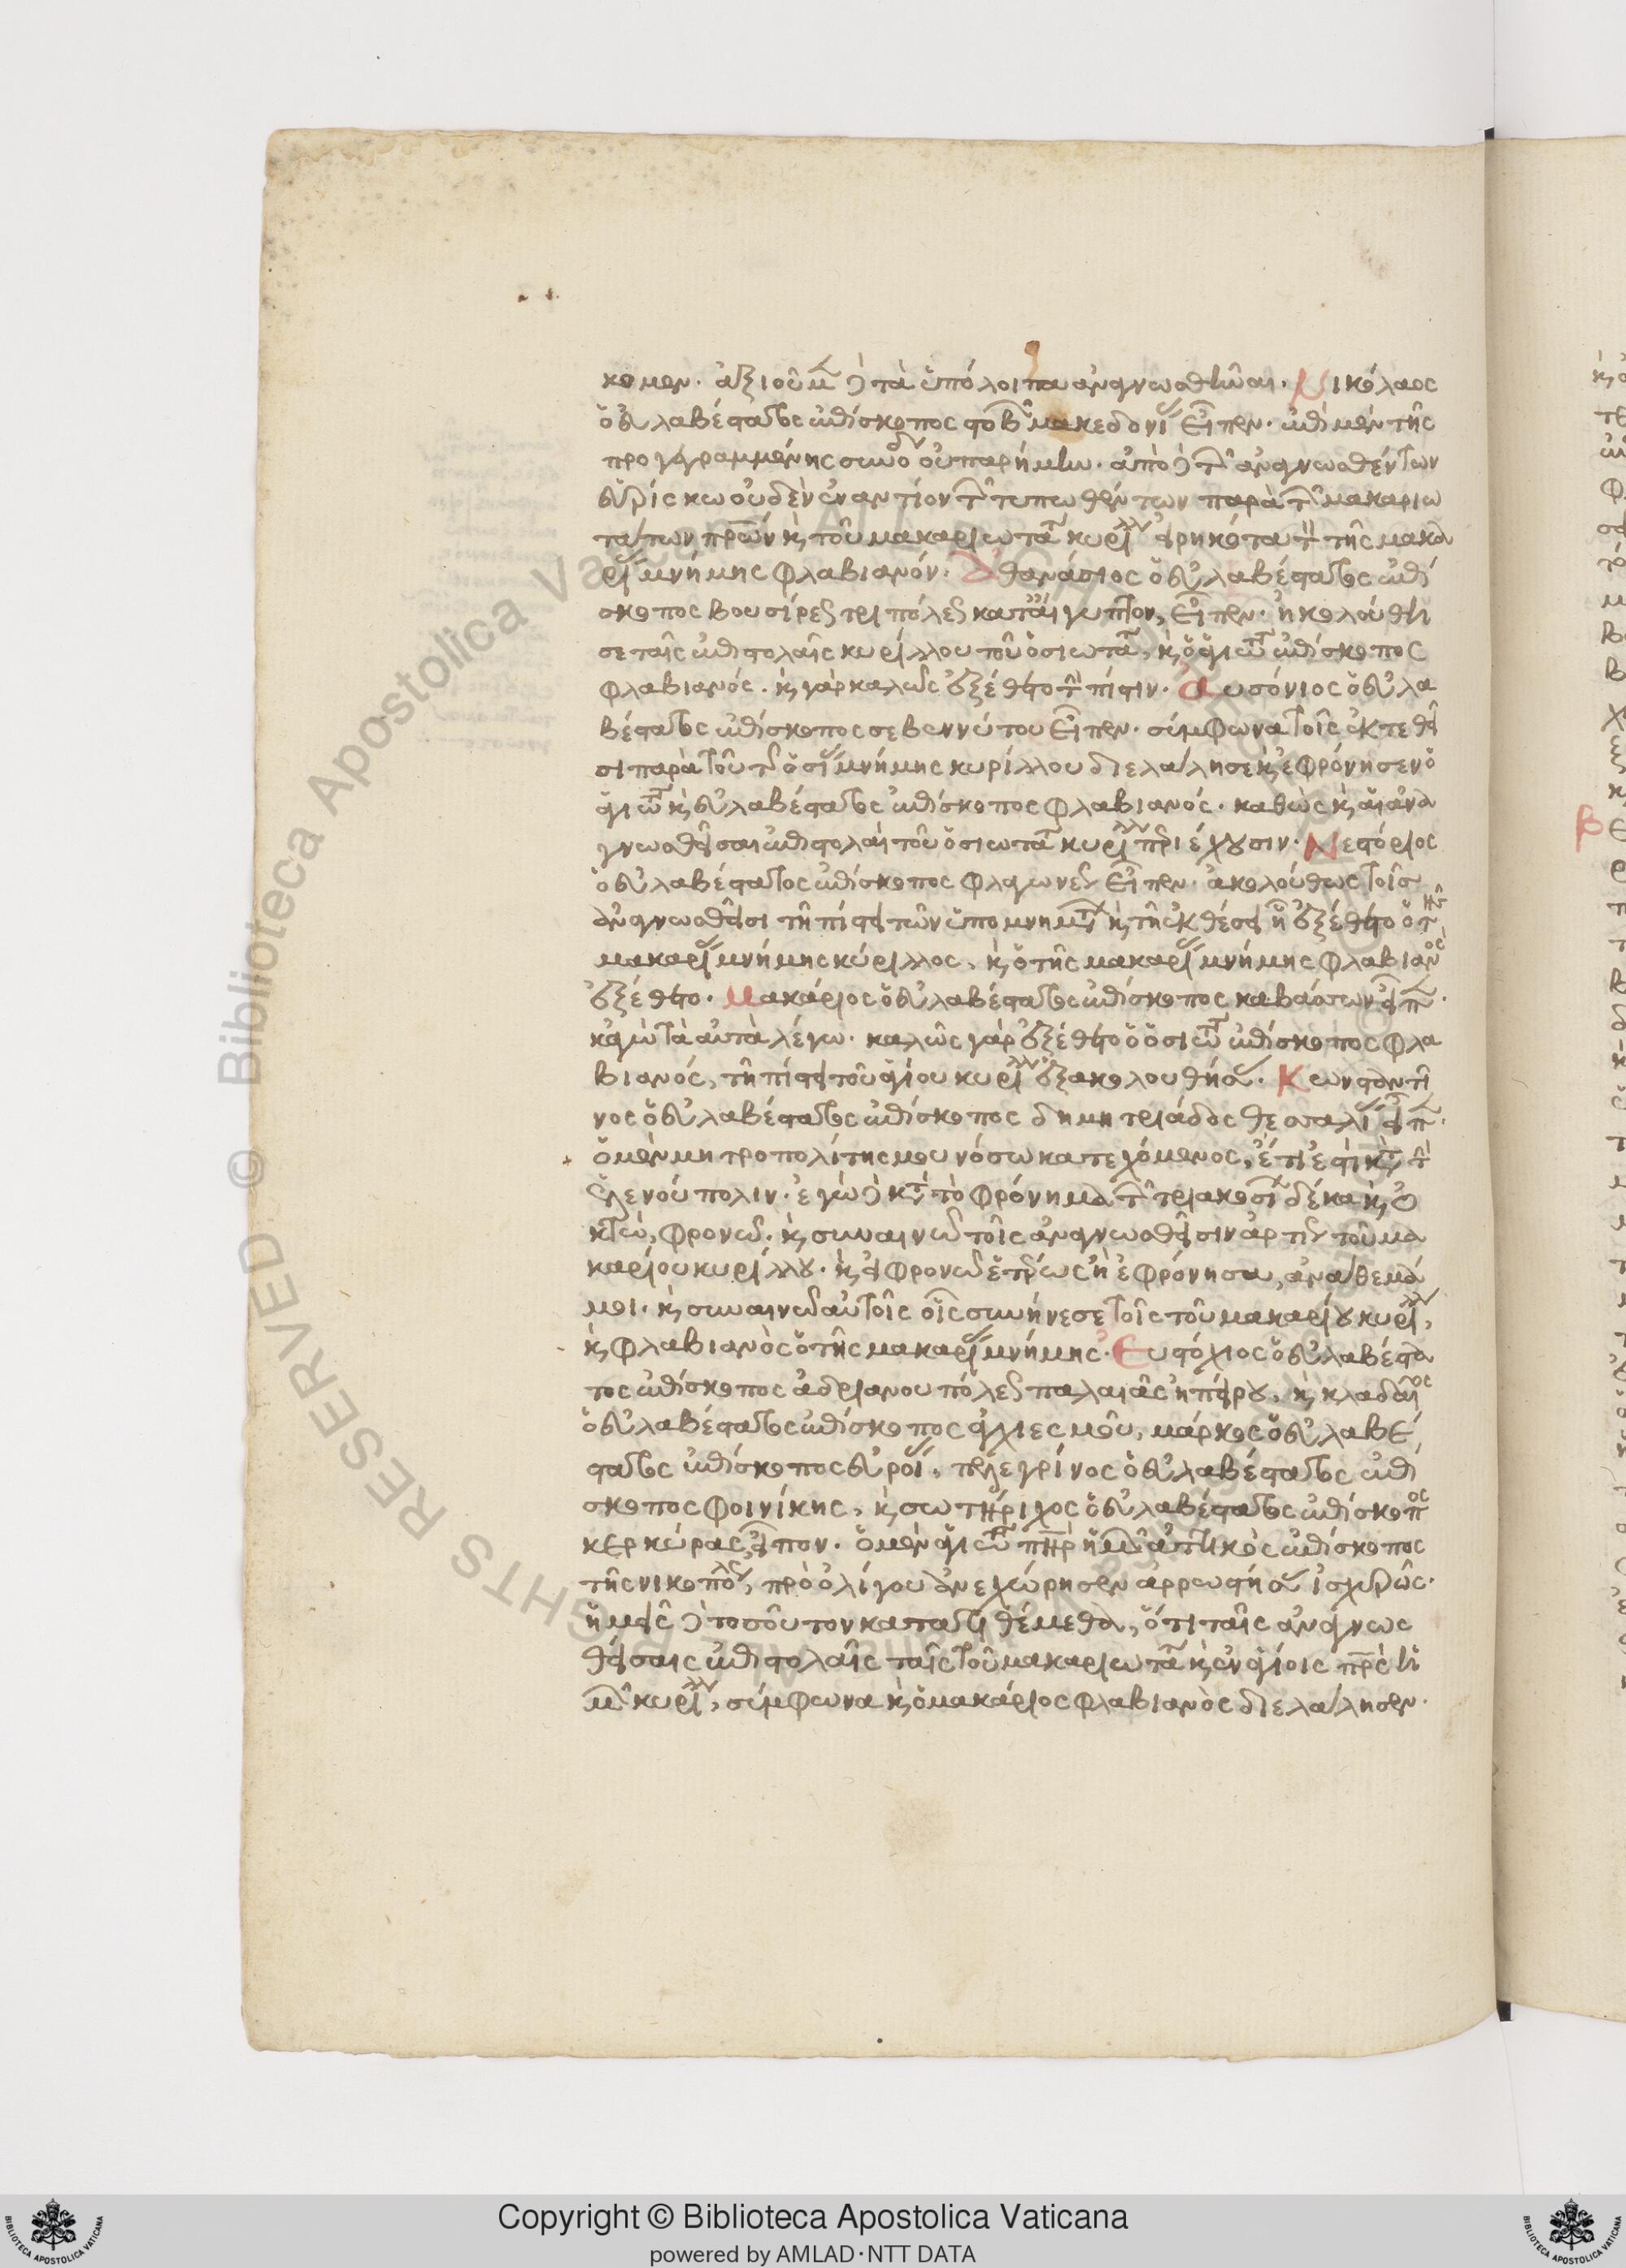 κομεν. ἀξιοῦμεν δὲ τὰ ὑπόλοιπα ἀναγνωσθῆναι. Νικόλαος
ὁ εὐλαβέστατος ἐπίσκοπος στόβων μακεδονίας εἶπεν. ἐπὶ μὲν τῆς
προγεγραμμένης συνόδου οὐ παρήμην. ἀπὸ δὲ τῶν ἀναγνωσθέντων
εὑρίσκω οὐδὲν ἐναντίον τῶν τυπωθέντων παρὰ τῶν μακαριω
τάτων πατέρων καὶ τοῦ μακαριωτάτου κυρίλλου εἰρηκότα τὸν τῆς μακα
ρίας μνήμης φλαβιανόν. Ἀθανάσιος ὁ εὐλαβέστατος ἐπί
σκοπος βουσίρεως τριπόλεως κατ' αἴγυπτον, εἶπεν. ἠκολούθη
σε ταῖς ἐπιστολαῖς κυρίλλου τοῦ ὁσιωτάτου, καὶ ὁ ἁγιώτατος ἐπίσκοπος
φλαβιανός. καὶ γὰρ καλῶς ἐξέθετο τὴν πίστιν. Αυσόνιος ὁ εὐλα
βέστατος ἐπίσκοπος σεβεννύτου εἶπεν. σύμφωνα τοῖς ἐκτεθεῖ
σι παρὰ τοῦ τῆς ὁσίας μνήμης κυρίλλου διελάλησε καὶ ἐφρόνησεν ὁ
ἁγιώτατος καὶ εὐλαβέστατος ἐπίσκοπος φλαβιανός. καθὼς καὶ αἱ ἀνα
γνωσθεῖσαι ἐπιστολαὶ τοῦ ὁσιωτάτου κυρίλλου περιέχουσιν. Νεστόριος
ὁ εὐλαβέστατος ἐπίσκοπος φλαγωνεως εἶπεν. ἀκολούθως τοῖς
ἀναγνωσθεῖσι τῇ πίστει τῶν ὑπομνημάτων καὶ τῇ ἐκθέσει ᾗ ἐξέθετο ὁ τῆς
μακαρίας μνήμης κύριλλος, καὶ ὁ τῆς μακαρίας μνήμης φλαβιανὸς
ἐξέθετο. Μακάριος ὁ εὐλαβέστατος ἐπίσκοπος καβάσων εἶπεν.
κἀγὼ τὰ αὐτὰ λέγω. καλῶς γὰρ ἐξέθετο ὁ ὁσιώτατος ἐπίσκοπος φλα
βιανός, τῇ πίστει τοῦ ἁγίου κυρίλλου ἐξακολουθήσας. Κωνσταντῖ
νος ὁ εὐλαβέστατος ἐπίσκοπος δημητριάδος θεσσαλίας εἶπεν.
ὁ μὲν μητροπολίτης μου νόσω κατεχόμενος, ἔτι ἐστὶ κατὰ τὴν
ἑλενούπολιν. ἐγὼ δὲ κατὰ τὸ φρόνημα τῶν τριακοσίων δέκα καὶ ὀ
κτὼ, φρονῶ. καὶ συναινῶ τοῖς ἀναγνωσθεῖσιν ἀρτίως τοῦ μα
καρίου κυρίλλου. καὶ εἰ φρονῶ ἑτέρως ἢ ἐφρόνησα, ἀνάθεμά
μοι. καὶ συναινῶ αὐτοῖς οἷς συνήνεσε τοῖς τοῦ μακαρίου κυρίλλου,
καὶ φλαβιανὸς ὁ τῆς μακαρίας μνήμης. Ευστόχιος ὁ εὐλαβέστα
τος ἐπίσκοπος ἀδριανουπόλεως παλαιᾶς ἠπείρου, καὶ κλαδαῖος
ὁ εὐλαβέστατος ἐπίσκοπος ἀγχιεσμοῦ, μάρκος ὁ εὐλαβέ
στατος ἐπίσκοπος εὐροίας, πελεγρίνος ὁ εὐλαβέστατος ἐπί
σκοπος φοινίκης, καὶ σωτήριχος ὁ εὐλαβέστατος ἐπίσκοπος
κερκύρας εἶπον. ὁ μὲν ἁγιώτατος πατὴρ ἡμῶν ἀττικὸς ἐπίσκοπος
τῆς νικοπόλεως, πρὸ ὀλίγου ἀνεχώρησεν ἀρρωστήσας ἰσχυρῶς.
ἡμεῖς δὲ τοσοῦτον κατατιθέμεθα, ὅτι ταῖς ἀναγνωσ
θείσαις ἐπιστολαῖς ταῖς τοῦ μακαριωτάτου καὶ ἐν ἁγίοις πατρὸς ἡ
μῶν κυρίλλου, σύμφωνα καὶ ὁ μακάριος φλαβιανὸς διελάλησεν.
Copyright © Biblioteca Apostolica Vaticana
powered by AMLAD·NTT DATA